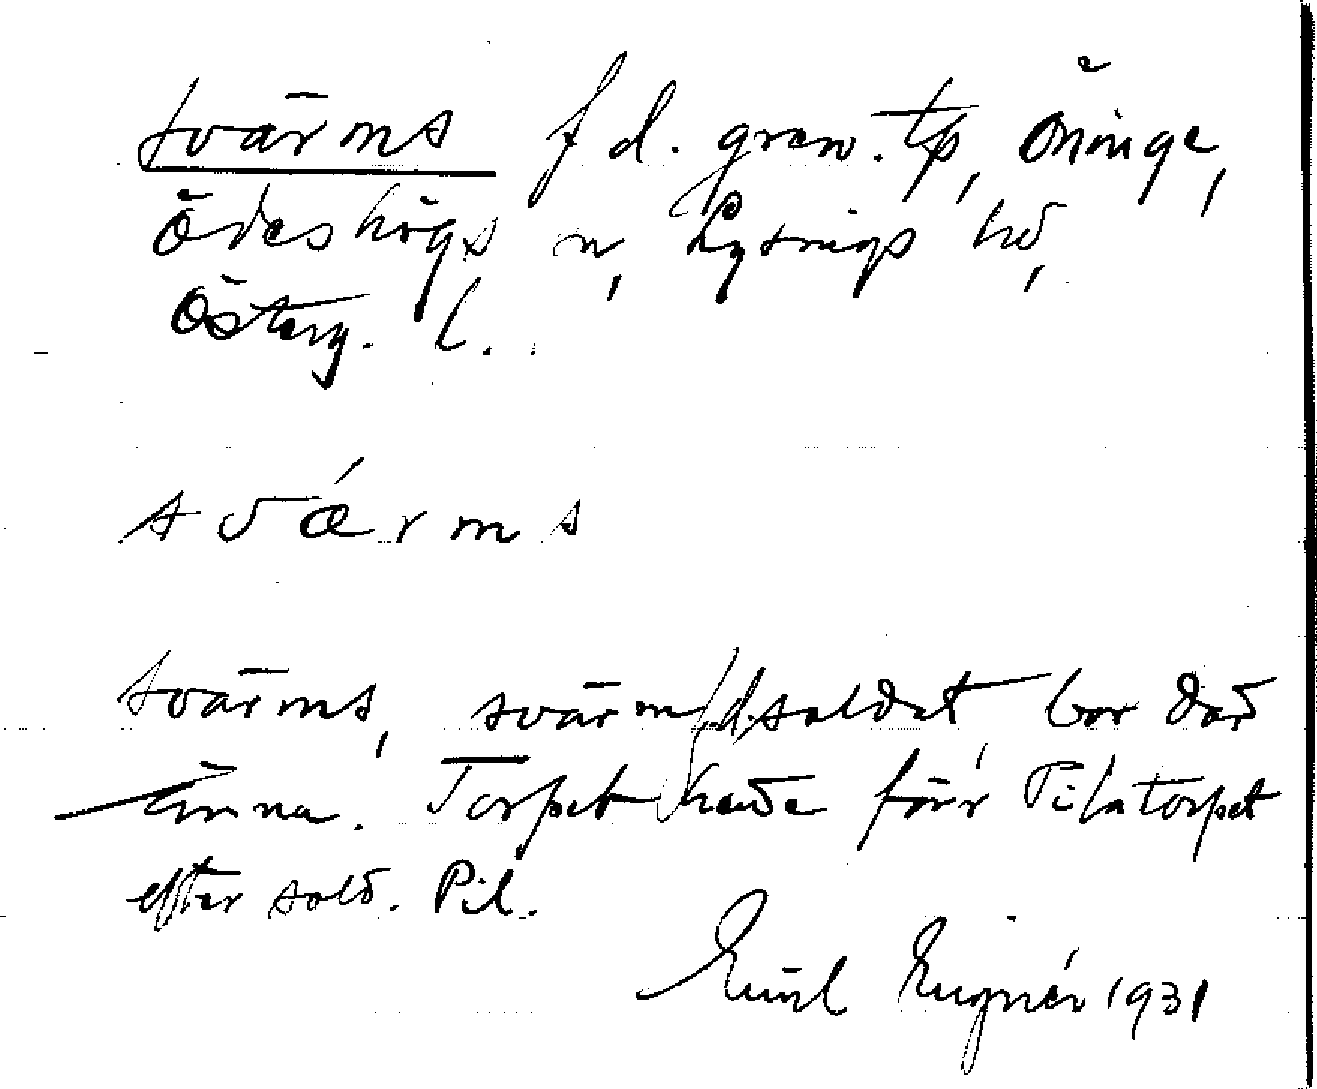 Svärms f d. gren. tp, Öninge,
Ödeshögs sn, Lysings hd,
Österg. l.
s v ǽ r m s
Svärms, svärm f.d. soldat, bor där
ännu. Torpet hade förr Pilatorpet
efter sold. Pil.
Emil Eugnér 1931